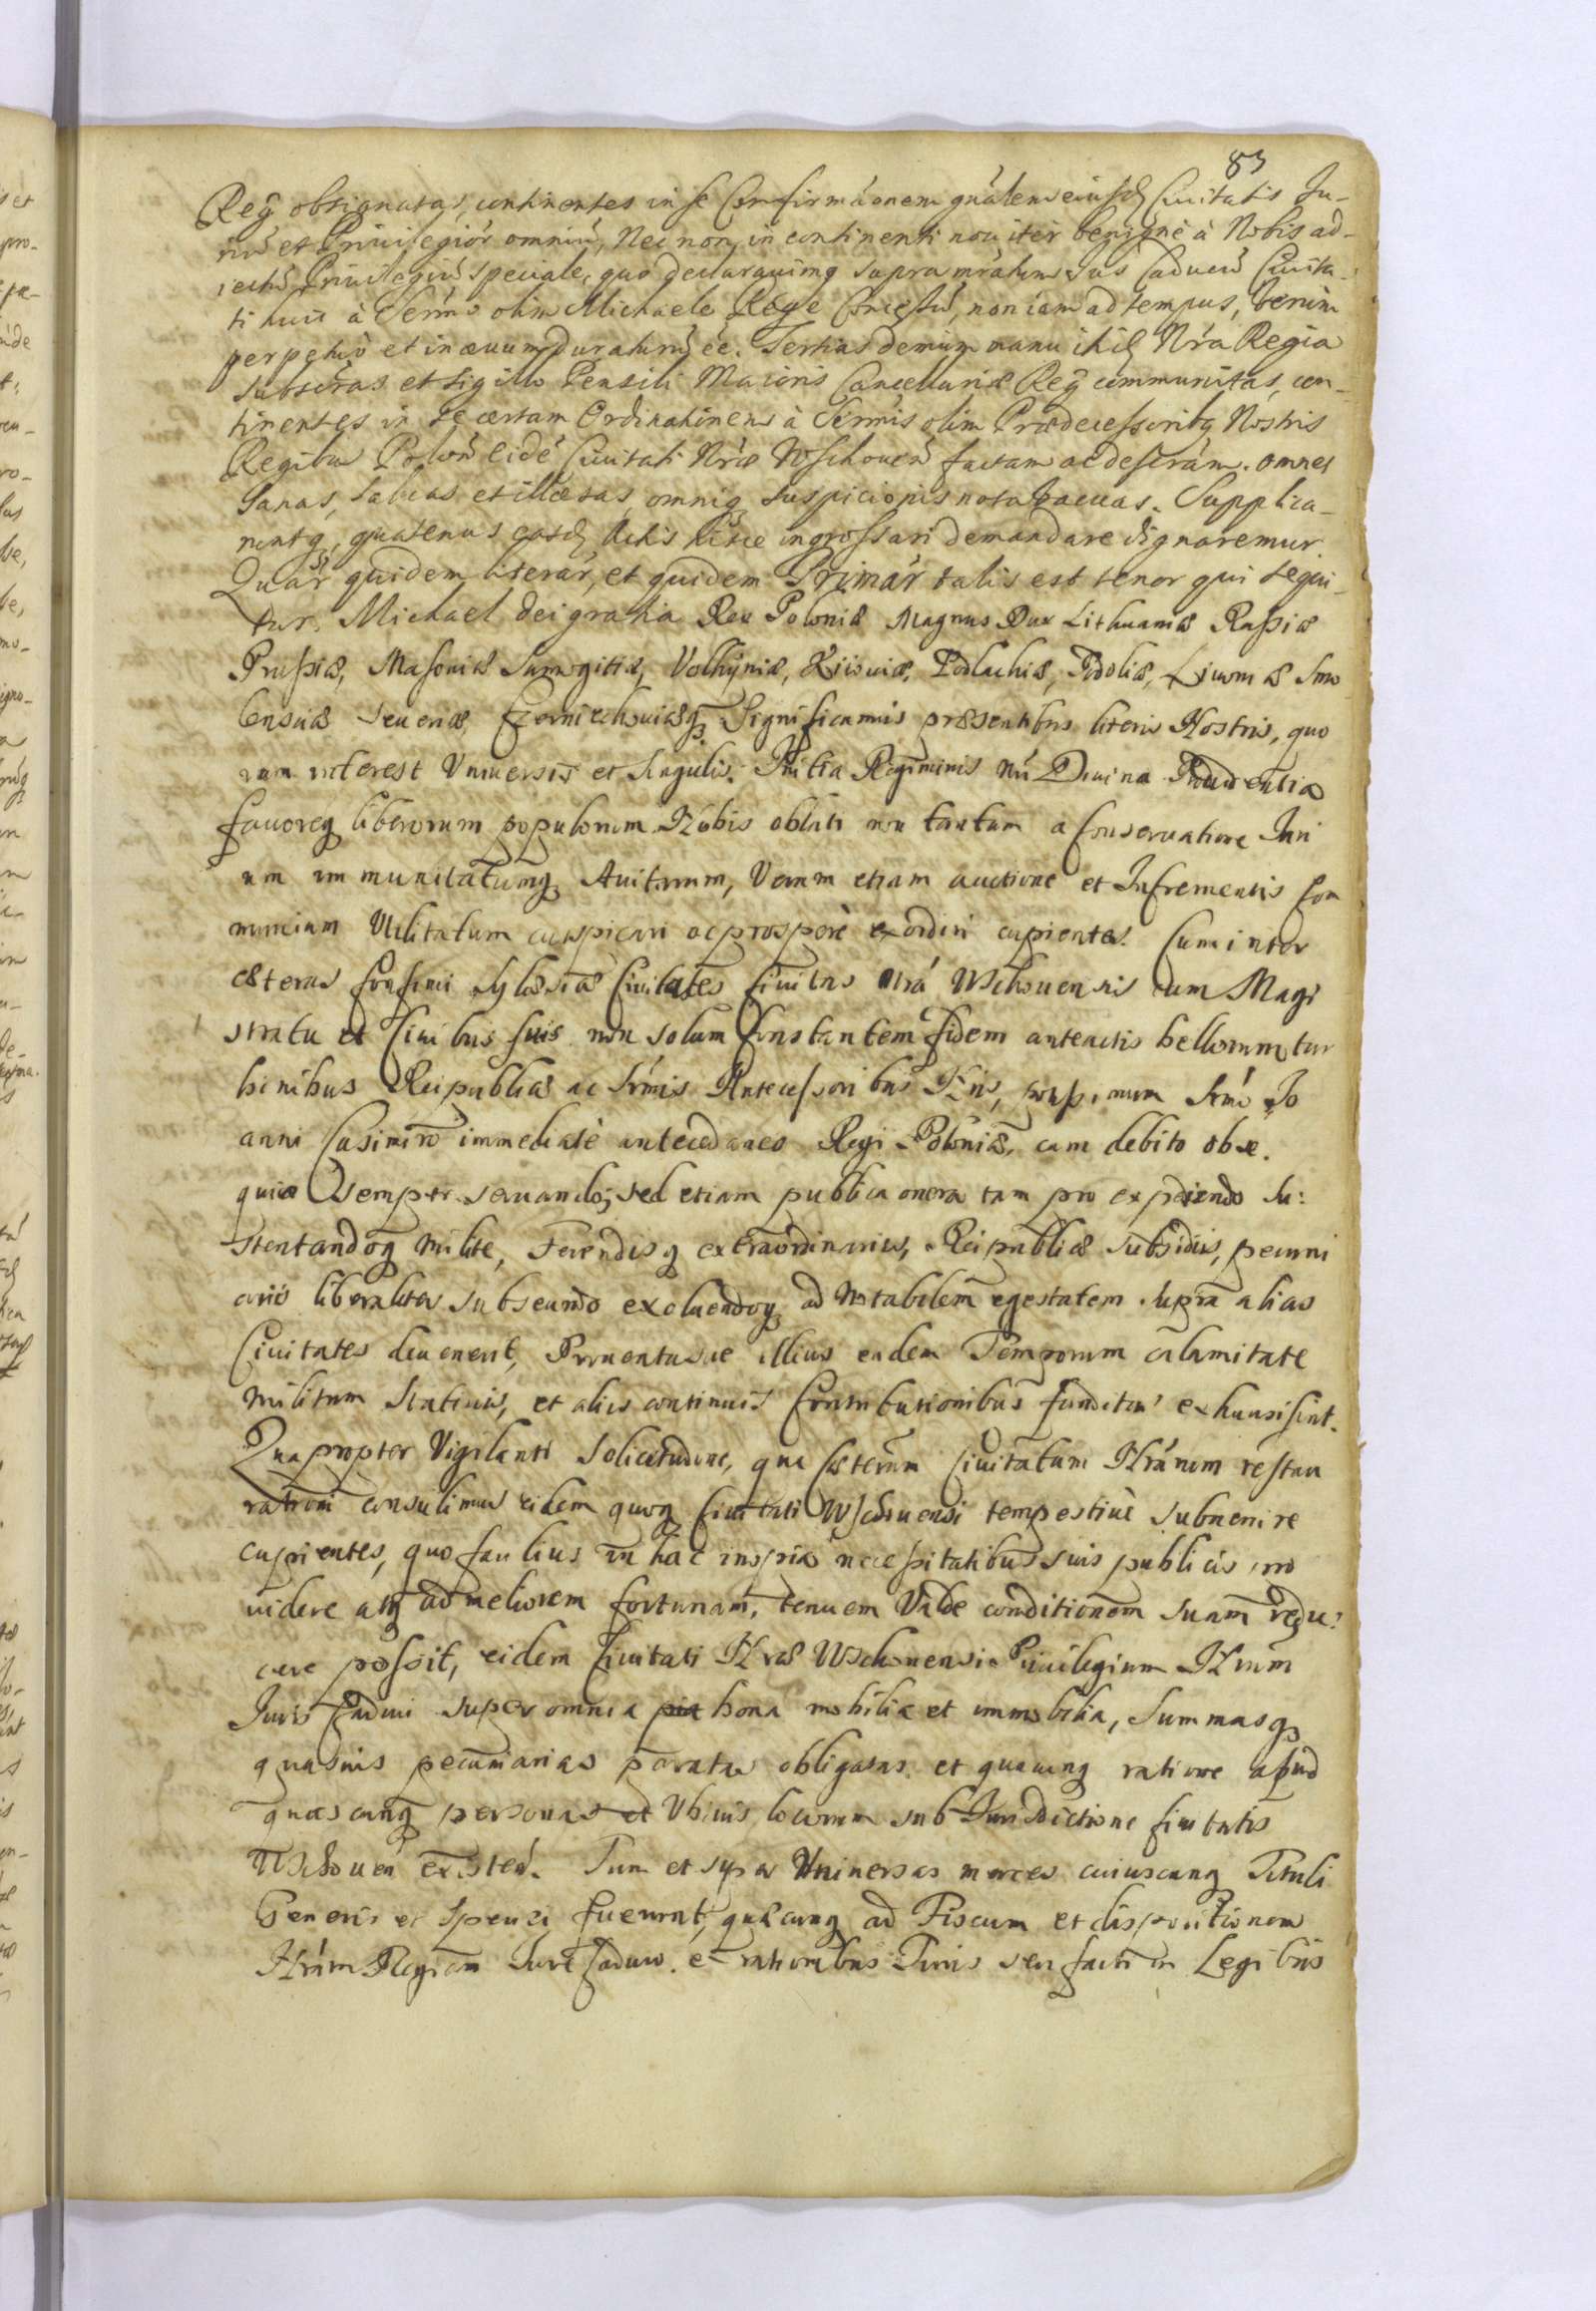 83
Reg obsignatas, continentes in se Confirmáonem gnálem eiusd Ciuitatis Ju-
riũ et Priuilegiór omniũ, Nec non in continenti nouiter benigne à Nobis ad-
iectũ Priuilegiũ speciale, quó declarauimq supra mrátum Jus Caducũ Ciuita-
ti huic à Sermó olim Michaele Rege Concessũ, non iam ad tempus, verum
perpetuó et in æuum duraturũ eé. Tertias demum manu itid Nrá Regia
subscrás et sigillo Pensili Maioris Cancellariæ Reg communitás, con-
tinentes in se certam Ordinationem à Sermis olim Prædecessoribq Nostris
Regibus Polon eidé Ciuitati Nrǽ Wschouen factam ac descrám. omnes
Sanas, saluas et illæsas, omniq suspicionis nota vacuas. Supplica-
runtq, quatenus easd Actis hisce ingrossari demandare dignaremur.
Quár quidem literár, et quidem Primár talis est tenor qui sequi-
tur. Michael Dei gratia Rex Poloniæ Magnus Dux Lithuaniæ Russiæ
Prussiæ, Masouiæ Samogitiæ, Volhyniæ, Kiiouiæ, Podlachiæ, Podoliæ, Liuoniæ Smo
lensciæ Seueriæ, Czerniechouiæq. Significamus præsentibus literis Nostris, quo
rum interest Vniuersis et singulis. Initia Regiminis nri Diuina Prouidentia
fauoreq liberorum populorum Nobis oblati non tantum a Conseruatione Juri
um immunitatumq Auitarum, Verum etiam auctione et Incrementis Com
munium Vtilitatum auspicari ac prospere exordiri cupientes. Cum inter
cæteras Confinii Sylesiæ Ciuitates Ciuitas Nrá Wschouensis cum Magi
stratu et Ciuibus suis non solum Constantem fidem anteactis bellorum tur
binibus Reipublicæ ac Srmis Antecessoribus Nris, Srmó Jo
anni Casimiro immediate antecedaneo Regi Poloniæ, cum debito obse.
quio semper seruando, sed etiam publica onera tam pro expediendo su:
stentandoq milite, Ferendisq extraordinariis, Reipublicæ Subsidiis, pecuni
ariis liberaliter subeundo exoluendoq ad Notabilem egestatem supra alias
Ciuitates deuenerit, Prouentusue illius eadem Temporum calamitate
militum Statiuis, et aliis continuis Contributionibus funditus exhausi sint.
Quapropter Vigilanti Solicitudine, qua Cæterum Ciuitatum Nrárum restau
rationi consulimus eidem quoq Ciuitati Wschouensi tempestiue subuenire
cupientes, quo facilius in hac inopia necessitatibus suis publicis pro
uidere atq ad meliorem fortunam, tenuem Valde conditionem suam redu:
cere possit, eidem Ciuitati Nræ Wschouensi Priuilegium Nrum
Juris Caduci super omnia bona mobilia et immobilia, Summasq
quasuis pecuniarias paratas obligatas et quacunq ratione apud
quascunq personas et Vbiuis locorum sub Jurisdictione Ciuitatis
Wschouen existen. Tum et super Vniuersas merces cuiuscunq Tituli
Generis et Speciei fuerint, quæcunq ad Fiscum et dispositionem
Nrám Regiam Jure Caduco et rationibus Juris seu facti in Legibus